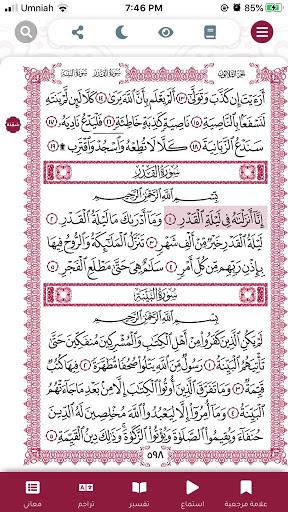 Umniah 7:46 PM 85%
الجزء الثلاثون سورة القدر سورة البينة
أَرَءَيْتَ إِن كَذَّبَ وَتَوَلَّىٰ ١٣ أَلَمْ يَعْلَم بِأَنَّ ٱللَّهَ يَرَىٰ ١٤ كَلَّا لَئِن لَّمْ يَنتَهِ
لَنَسْفَعًۢا بِٱلنَّاصِيَةِ ١٥ نَاصِيَةٍ كَٰذِبَةٍ خَاطِئَةٍ ١٦ فَلْيَدْعُ نَادِيَهُۥ ١٧
سَنَدْعُ ٱلزَّبَانِيَةَ ١٨ كَلَّا لَا تُطِعْهُ وَٱسْجُدْ وَٱقْتَرِب ۩ ١٩
سُورَةُ القَدْرِ
بِسْمِ ٱللَّهِ ٱلرَّحْمَٰنِ ٱلرَّحِيمِ
إِنَّآ أَنزَلْنَٰهُ فِى لَيْلَةِ ٱلْقَدْرِ ١ وَمَآ أَدْرَىٰكَ مَا لَيْلَةُ ٱلْقَدْرِ ٢
لَيْلَةُ ٱلْقَدْرِ خَيْرٌ مِّنْ أَلْفِ شَهْرٍ ٣ تَنَزَّلُ ٱلْمَلَٰٓئِكَةُ وَٱلرُّوحُ فِيهَا
بِإِذْنِ رَبِّهِم مِّن كُلِّ أَمْرٍ ٤ سَلَٰمٌ هِىَ حَتَّىٰ مَطْلَعِ ٱلْفَجْرِ ٥
سُورَةُ البَيِّنَةِ
بِسْمِ ٱللَّهِ ٱلرَّحْمَٰنِ ٱلرَّحِيمِ
لَمْ يَكُنِ ٱلَّذِينَ كَفَرُوا۟ مِنْ أَهْلِ ٱلْكِتَٰبِ وَٱلْمُشْرِكِينَ مُنفَكِّينَ حَتَّىٰ
تَأْتِيَهُمُ ٱلْبَيِّنَةُ ١ رَسُولٌ مِّنَ ٱللَّهِ يَتْلُوا۟ صُحُفًا مُّطَهَّرَةً ٢ فِيهَا كُتُبٌ
قَيِّمَةٌ ٣ وَمَا تَفَرَّقَ ٱلَّذِينَ أُوتُوا۟ ٱلْكِتَٰبَ إِلَّا مِنۢ بَعْدِ مَا جَآءَتْهُمُ
ٱلْبَيِّنَةُ ٤ وَمَآ أُمِرُوٓا۟ إِلَّا لِيَعْبُدُوا۟ ٱللَّهَ مُخْلِصِينَ لَهُ ٱلدِّينَ
حُنَفَآءَ وَيُقِيمُوا۟ ٱلصَّلَوٰةَ وَيُؤْتُوا۟ ٱلزَّكَوٰةَ وَذَٰلِكَ دِينُ ٱلْقَيِّمَةِ ٥
٥٩٨
علامة مرجعية استماع تفسير تراجم معاني